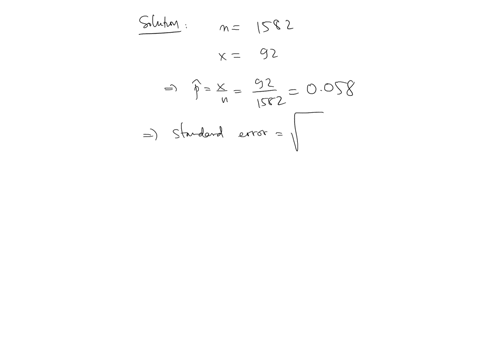 Solution:
n = 1582
x = 92
⇒ p̂ = x/n = 92/1582 = 0.058
⇒ Standard error = √